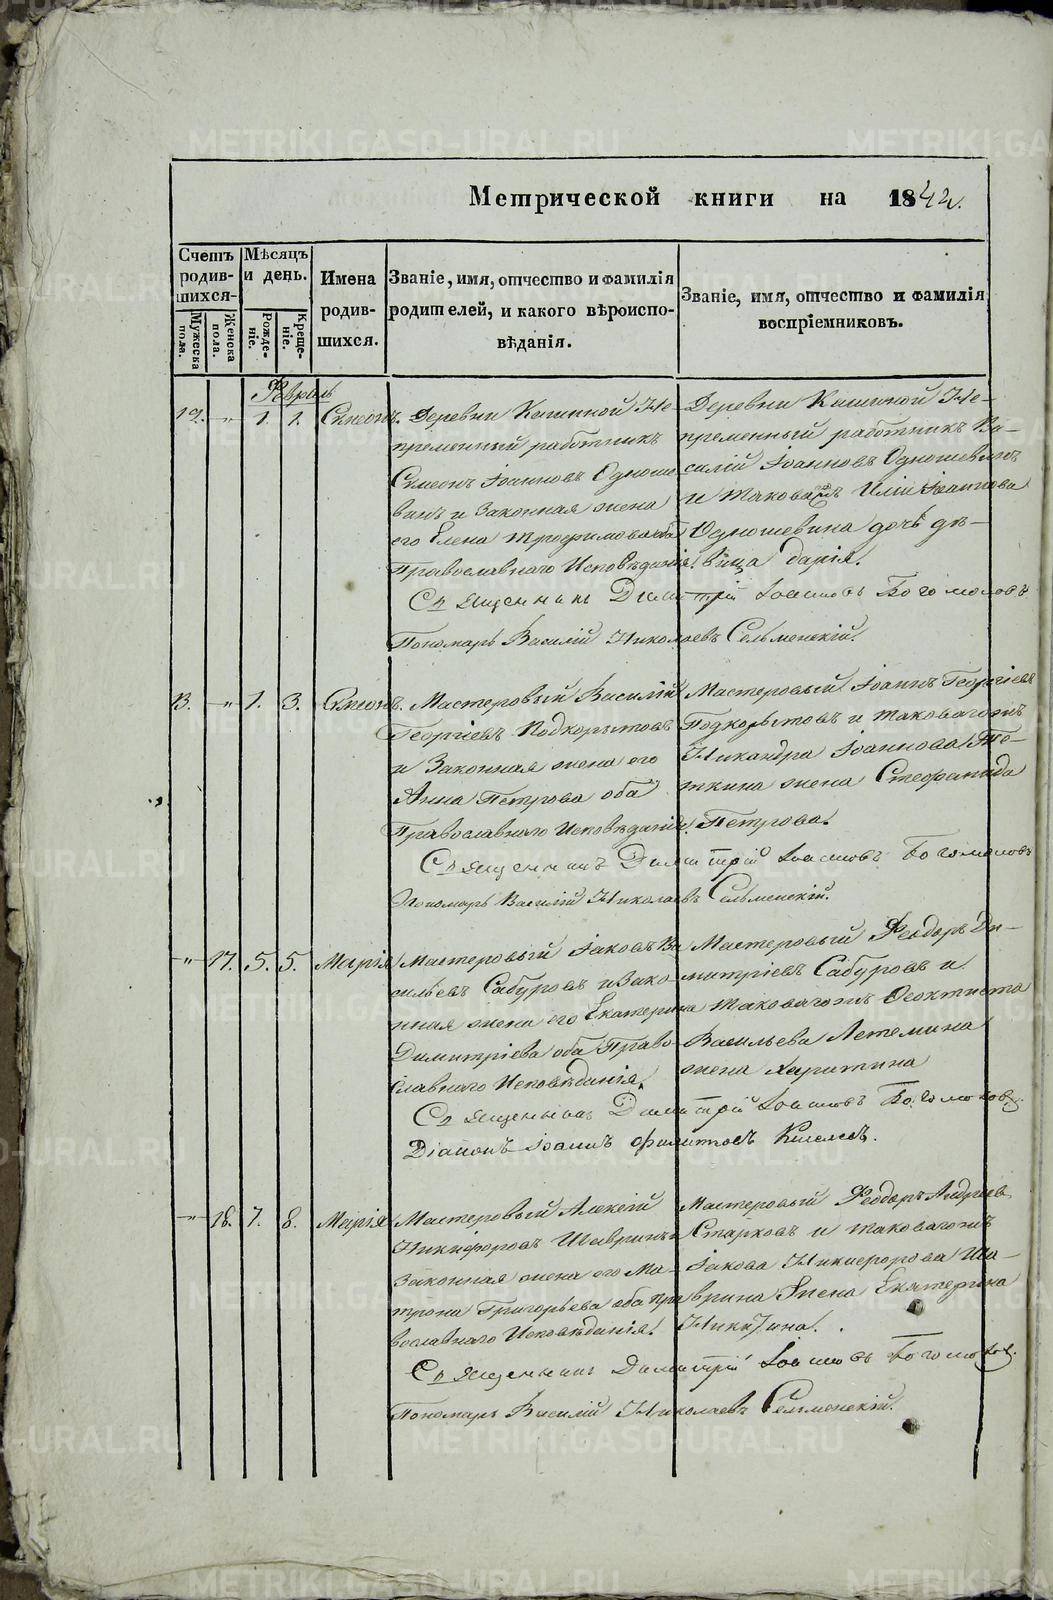 Метрической книги на 1842.
Счетъ родив-шихся-
Мѣсяцъ и день.
Имена родив-шихся.
Званіе, имя, отчество и фамилія родителей, и какого вѣроиспо-вѣданія.
Званіе, имя, отчество и фамилія воспріемниковъ.
Мужеска пола.
Женска пола.
Рожде-ніе.
Креще-ніе.
Февраль
12. „ 1. 1. Симеонъ.
Деревни Кашиной Не-
пременный работникъ
Симеонъ Іоанновъ Одноше-
винъ и Законная жена
его Елена Трофимова оба
Православнаго Исповѣданія.
Деревни Кашиной Не-
пременный работникъ Ва-
силій Іоанновъ Одношевинъ
и таковагожъ Иліи Іоаннова
Одношевина дочь дѣ-
вица Дарія.
Священникъ Димитрій Іоанновъ Богомоловъ
Пономарь Василій Николаевъ Сельменскій.
13. „ 1. 3. Симеонъ.
Мастеровый Василій
Георгіевъ Подкорытовъ
и Законная жена его
Анна Петрова оба
Православнаго Исповѣданія.
Мастеровый Іоаннъ Георгіевъ
Подкорытовъ и таковагожъ
Никандра Іоаннова Те-
ткина жена Стефанида
Петрова.
Священникъ Димитрій Іоанновъ Богомоловъ
Пономарь Василій Николаевъ Сельменскій.
„ 17. 5. 5. Марія
Мастеровый Іаковъ Ва-
сильевъ Сабуровъ и Зако-
нная жена его Екатерина
Димитріева оба Право-
славнаго Исповѣданія.
Мастеровый Ѳеодоръ Ди-
митріевъ Сабуровъ и
таковагожъ Ѳеоктиста
Васильева Летемина
жена Харитина
Священникъ Димитрій Іоанновъ Богомоловъ.
Діаконъ Іоаннъ
„ 18. 7. 8. Марія
Мастеровый Алексій
Никифоровъ Шавринъ и
Законная жена его Ма-
трона Григорьева оба Пра-
вославнаго Исповѣданія.
Мастеровый Ѳеодоръ Андреевъ
Старковъ и таковагожъ
Іакова Никифорова Ша-
врина жена Екатерина
Никитина.
Священникъ Димитрій Іоанновъ Богомоловъ.
Пономарь Василій Николаевъ Сельменскій.
METRIKI.GASO-URAL.RU